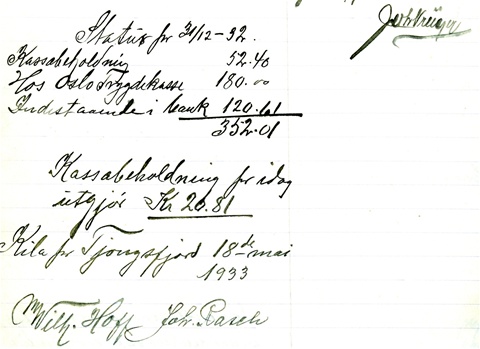 Joh Krüger
Status pr 31/12-32.
Kassabeholdning 52.40
Hos Oslo Trygdekasse 180.00
Indestaaende i bank 120.61
352.01
Kassabeholdning pr idag
utgjör Kr 20.81
Kila pr Tjongsfjord 18de mai
1933
Wilh. Hoff Joh. Rasch